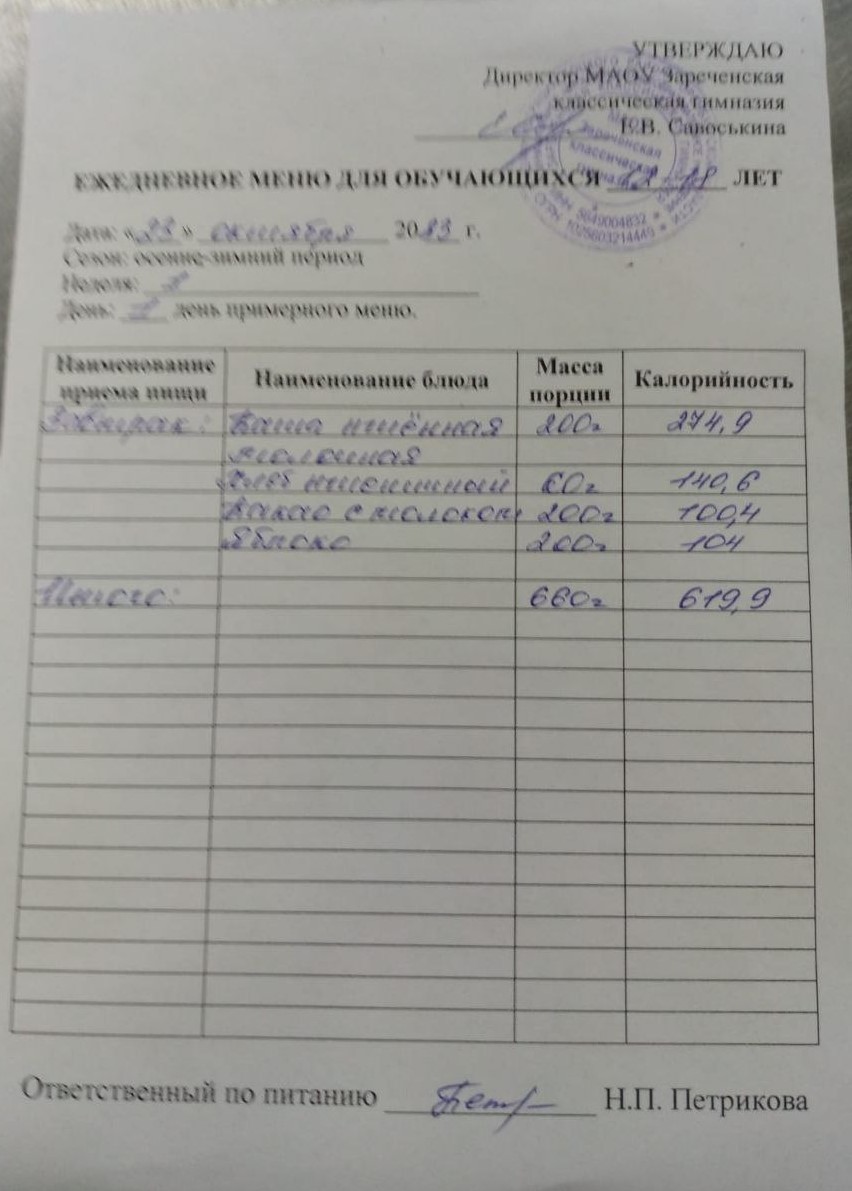 УТВЕРЖДАЮ
Директор МАОУ Зареченская
классическая гимназия
Е.В. Савоськина
Зареченская
классическая
ИНН 5649004832
ОГРН 1025603214449
ЕЖЕДНЕВНОЕ МЕНЮ ДЛЯ ОБУЧАЮЩИХСЯ 12-18 ЛЕТ
Дата: «23» октября 2023 г.
Сезон: осенне-зимний период
Неделя:
День: 1 день примерного меню.
Наименование приема пищи Наименование блюда Масса порции Калорийность
Завтрак: Каша пшённая 200г 274,9
молочная
Хлеб пшеничный 60г 140,6
Какао с молоком 200г 100,4
Яблоко 200г 104
Итого: 660г 619,9
Ответственный по питанию Н.П. Петрикова